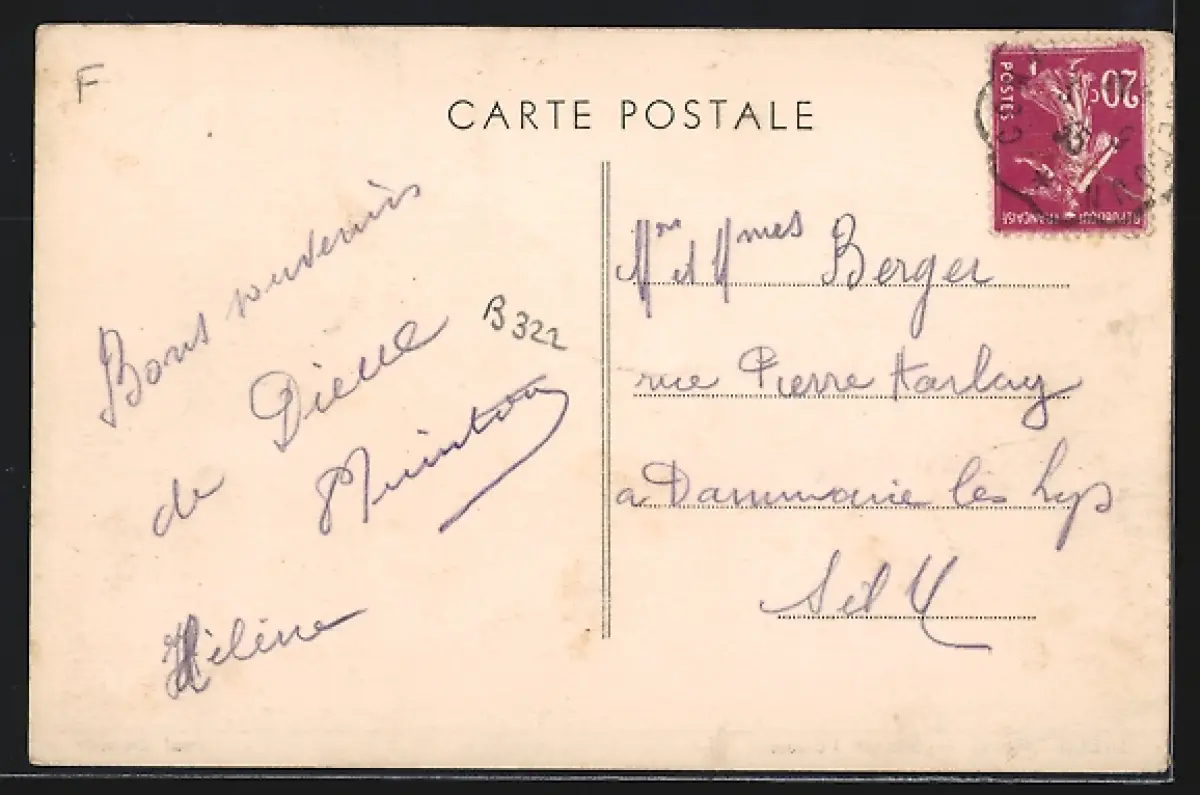 F
CARTE POSTALE
20c
POSTES
REPUBLIQUE FRANÇAISE
Bons souvenirs
de Pierre
B322
Hélène
Mr et Mmes Berger
rue Pierre Harlay
a Dammarie les Lys
S et M